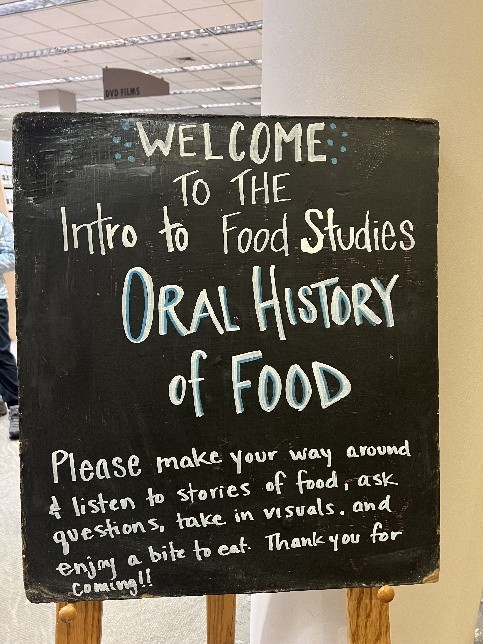 DVD FILMS
WELCOME
TO THE
Intro to Food Studies
ORAL HISTORY
of FOOD
Please make your way around
& listen to stories of food, ask
questions, take in visuals. and
enjoy a bite to eat. Thank you for
coming!!